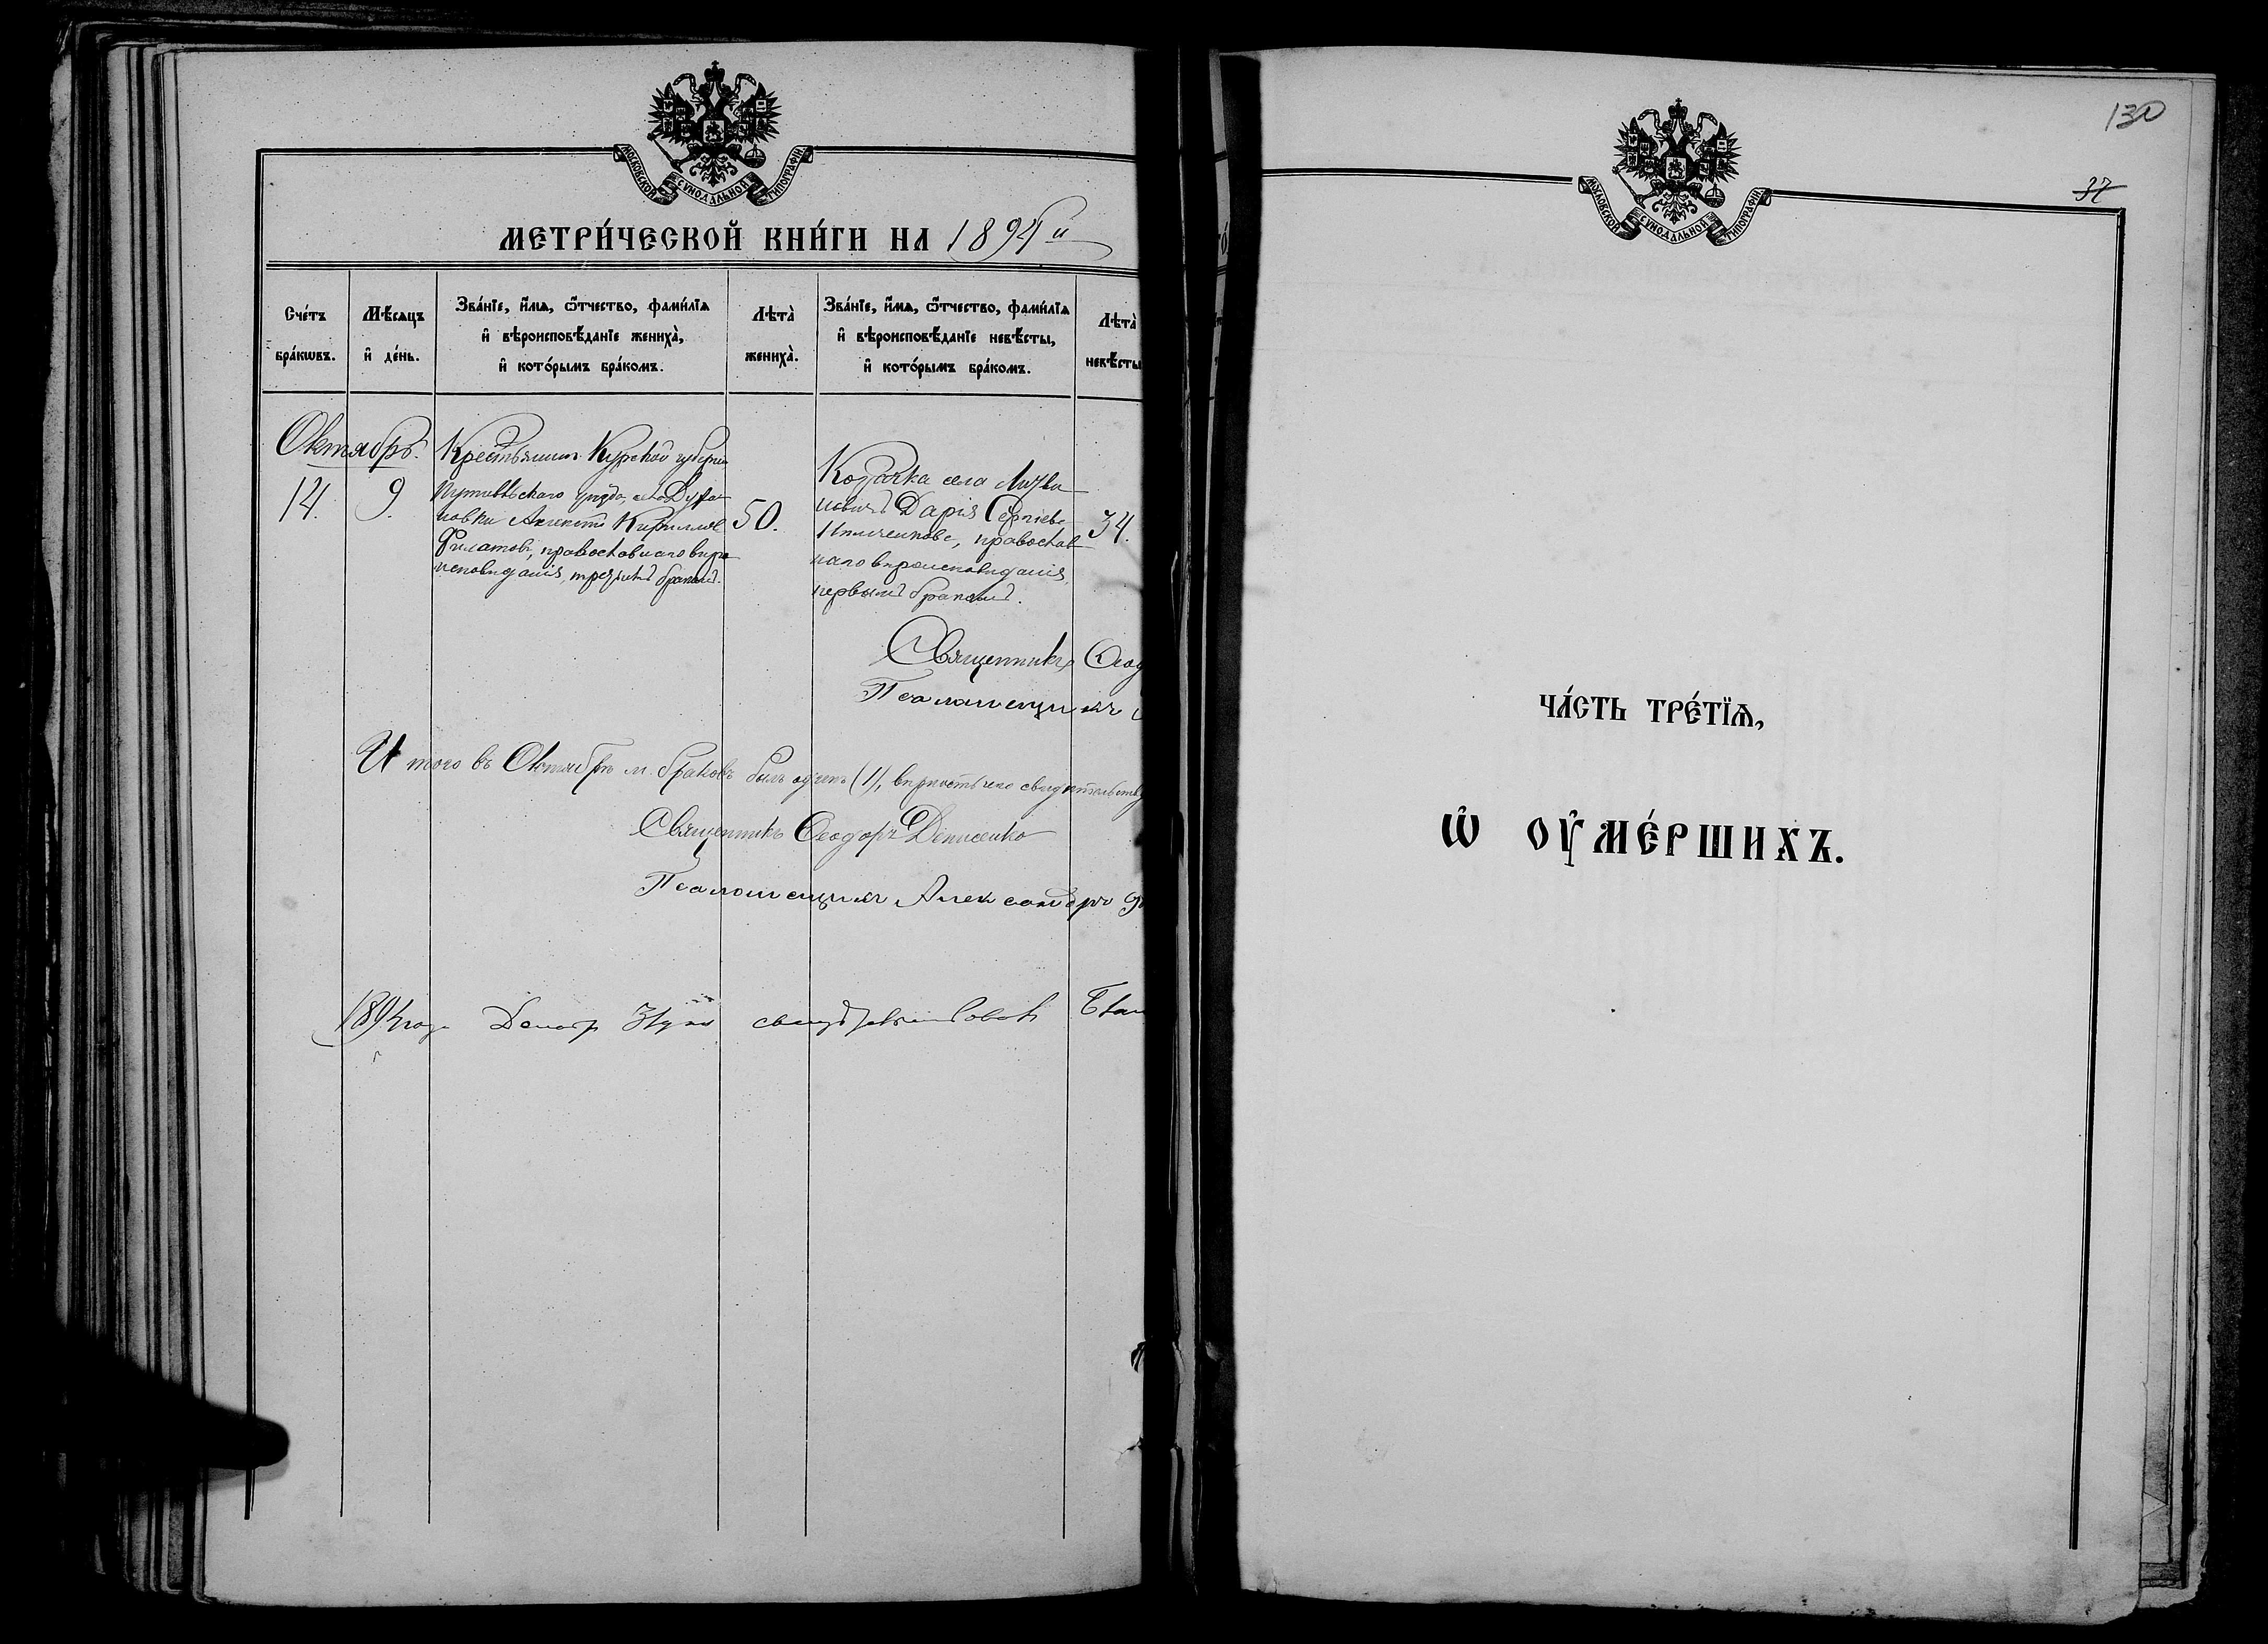 МОСКОВСКОЙ СУНОДАЛЬНОЙ ТИПОГРАФІИ
МЕТРИ́ЧЕСКОЙ КНИ́ГИ НА 1894й
Сче́тъ бра́кѡвъ.
Мѣ́сяцъ и҆ де́нь.
Зва́нїе, и҆́мѧ, ѻ҆́тчество, фами́лїѧ
и҆ вѣроисповѣ́данїе жениха̀,
и҆ кото́рымъ бра́комъ.
Лѣта̀ жениха̀.
Зва́нїе, и҆́мѧ, ѻ҆́тчество, фами́лїѧ
и҆ вѣроисповѣ́данїе невѣ́сты,
и҆ кото́рымъ бра́комъ.
Лѣта̀ невѣ́сты
Октябрь.
14.
9.
Крестьянин Курской губерніи
Путивльскаго уѣзда, села
новки Алексѣй Кириллов
Филатовъ, православнаго вѣро
исповѣданія, третьимъ бракомъ.
50.
Козачка села
Дарія Сергіева
православ
наго вѣроисповѣданія,
первымъ бракомъ.
34.
Священникъ Ѳеод
Псаломщикъ
Итого въ Октябрѣ м. браковъ былъ одинъ (1), вѣрность чего свидѣтельству
Священникъ Ѳеодоръ Денисенко
Псаломщикъ Александръ
1894 года
130
37
МОСКОВСКОЙ СУНОДАЛЬНОЙ ТИПОГРАФІИ
ЧА́СТЬ ТРЕ́ТЇѦ,
Ѡ҆ ОУ҆МЕ́РШИХЪ.